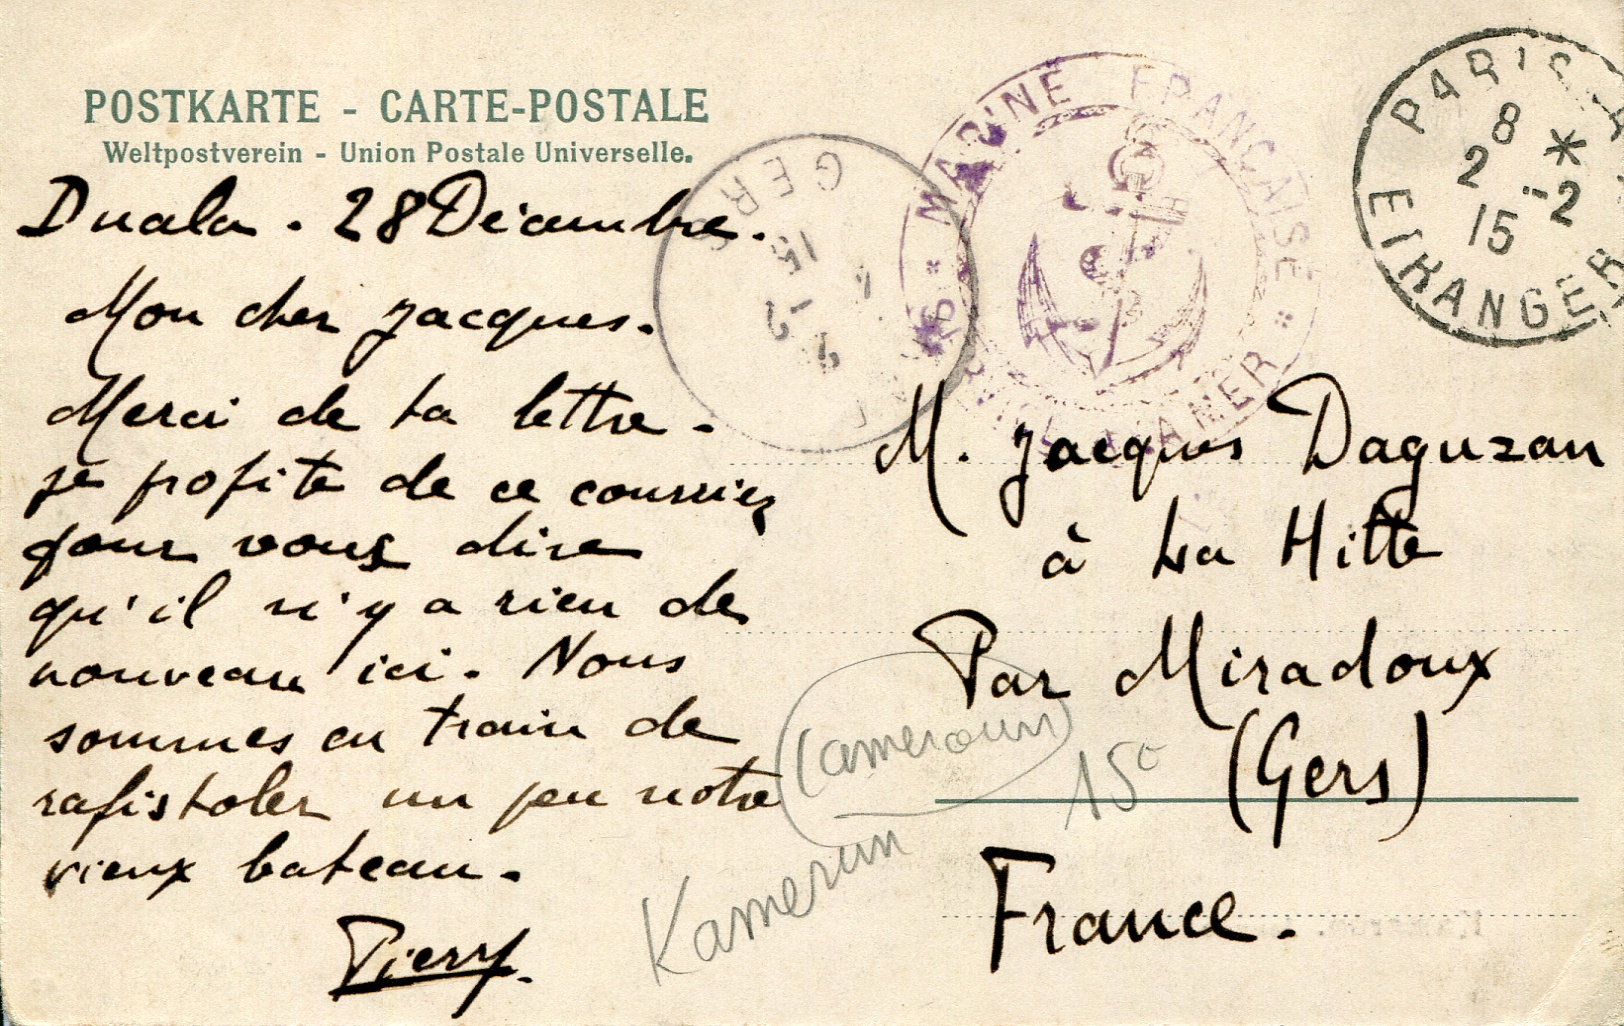 POSTKARTE - CARTE-POSTALE
Weltpostverein - Union Postale Universelle.
Duala. 28 Décembre.
Mon cher Jacques.
Merci de ta lettre.
je profite de ce courrier
pour vous dire
qu'il n'y a rien de
nouveau ici. Nous
sommes en train de
rafistoler un peu notre
vieux bateau.
Pierry.
GERS
15
MARINE FRANÇAISE
MER
PARIS
8
2 -2
15
ETRANGER
M. Jacques Daguzan
à La Hitte
Par Miradoux
(Gers)
France.
(Cameroun)
15c
Kamerun